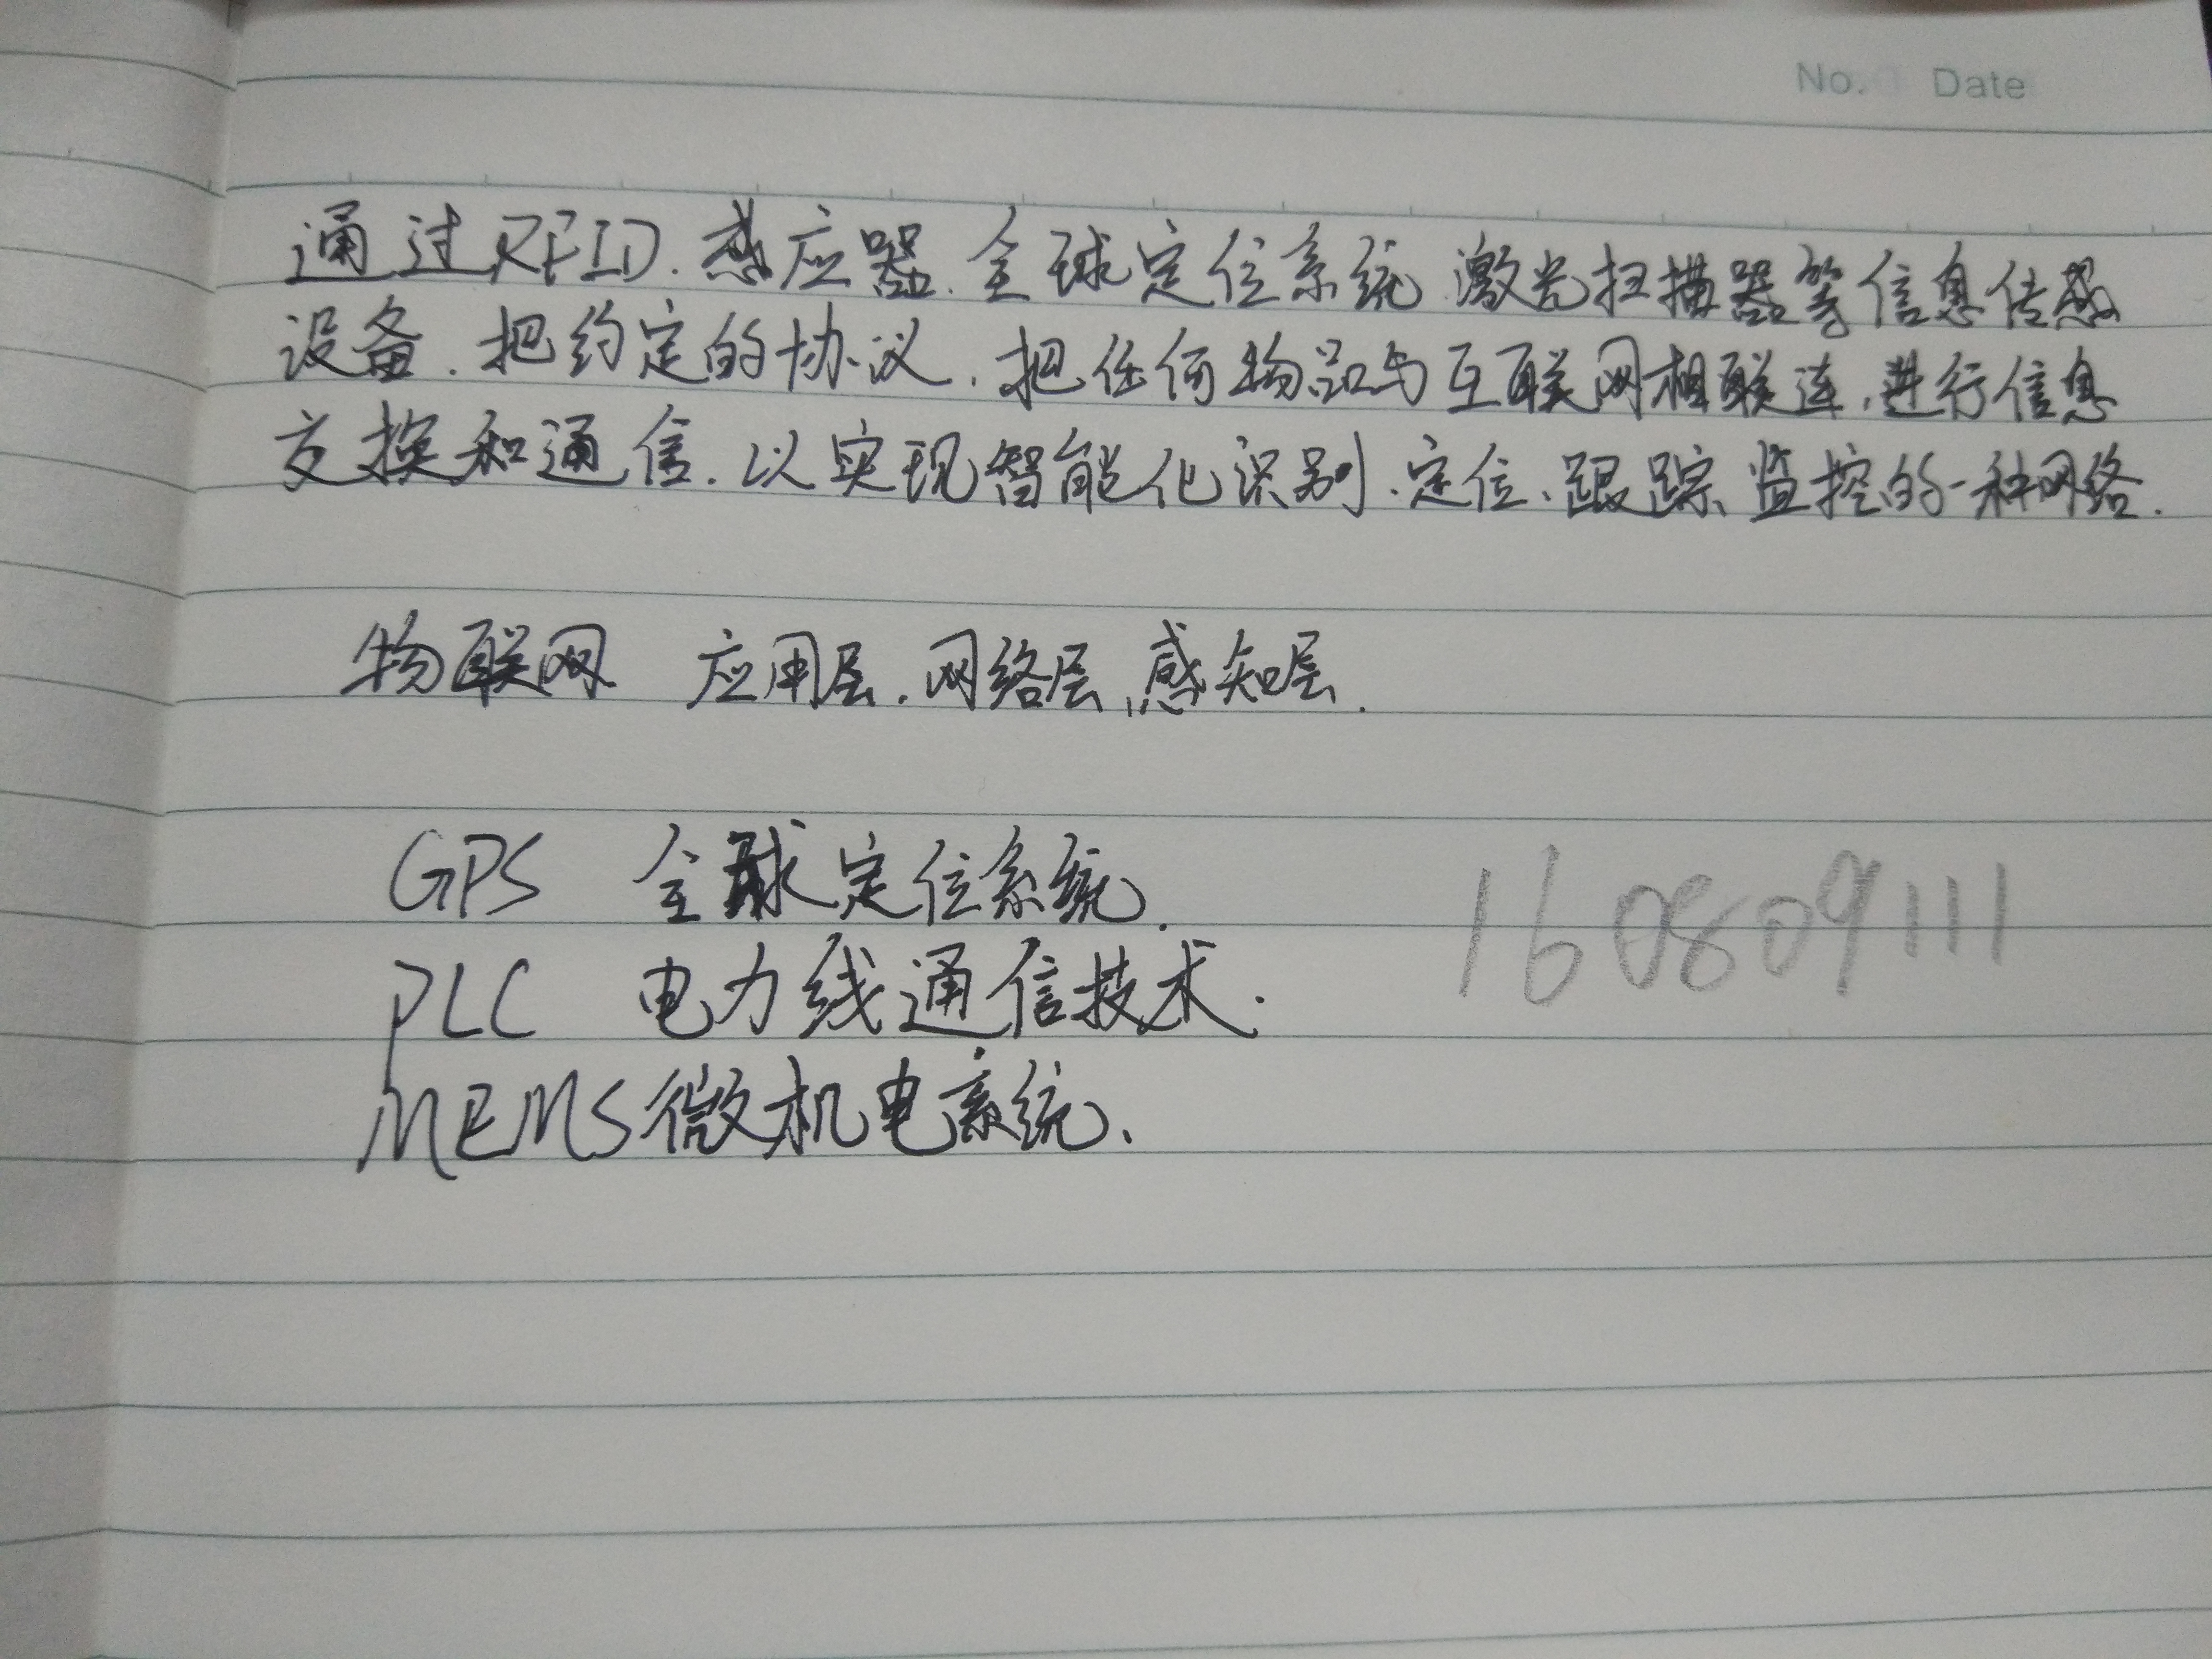 No. Date
通过RFID、感应器、全球定位系统、激光扫描器等信息传感
设备，把约定的协议，把任何物品与互联网相联连，进行信息
交换和通信，以实现智能化识别、定位、跟踪、监控的一种网络.
物联网 应用层、网络层、感知层.
GPS 全球定位系统.
PLC 电力线通信技术.
160809111
MEMS微机电系统、